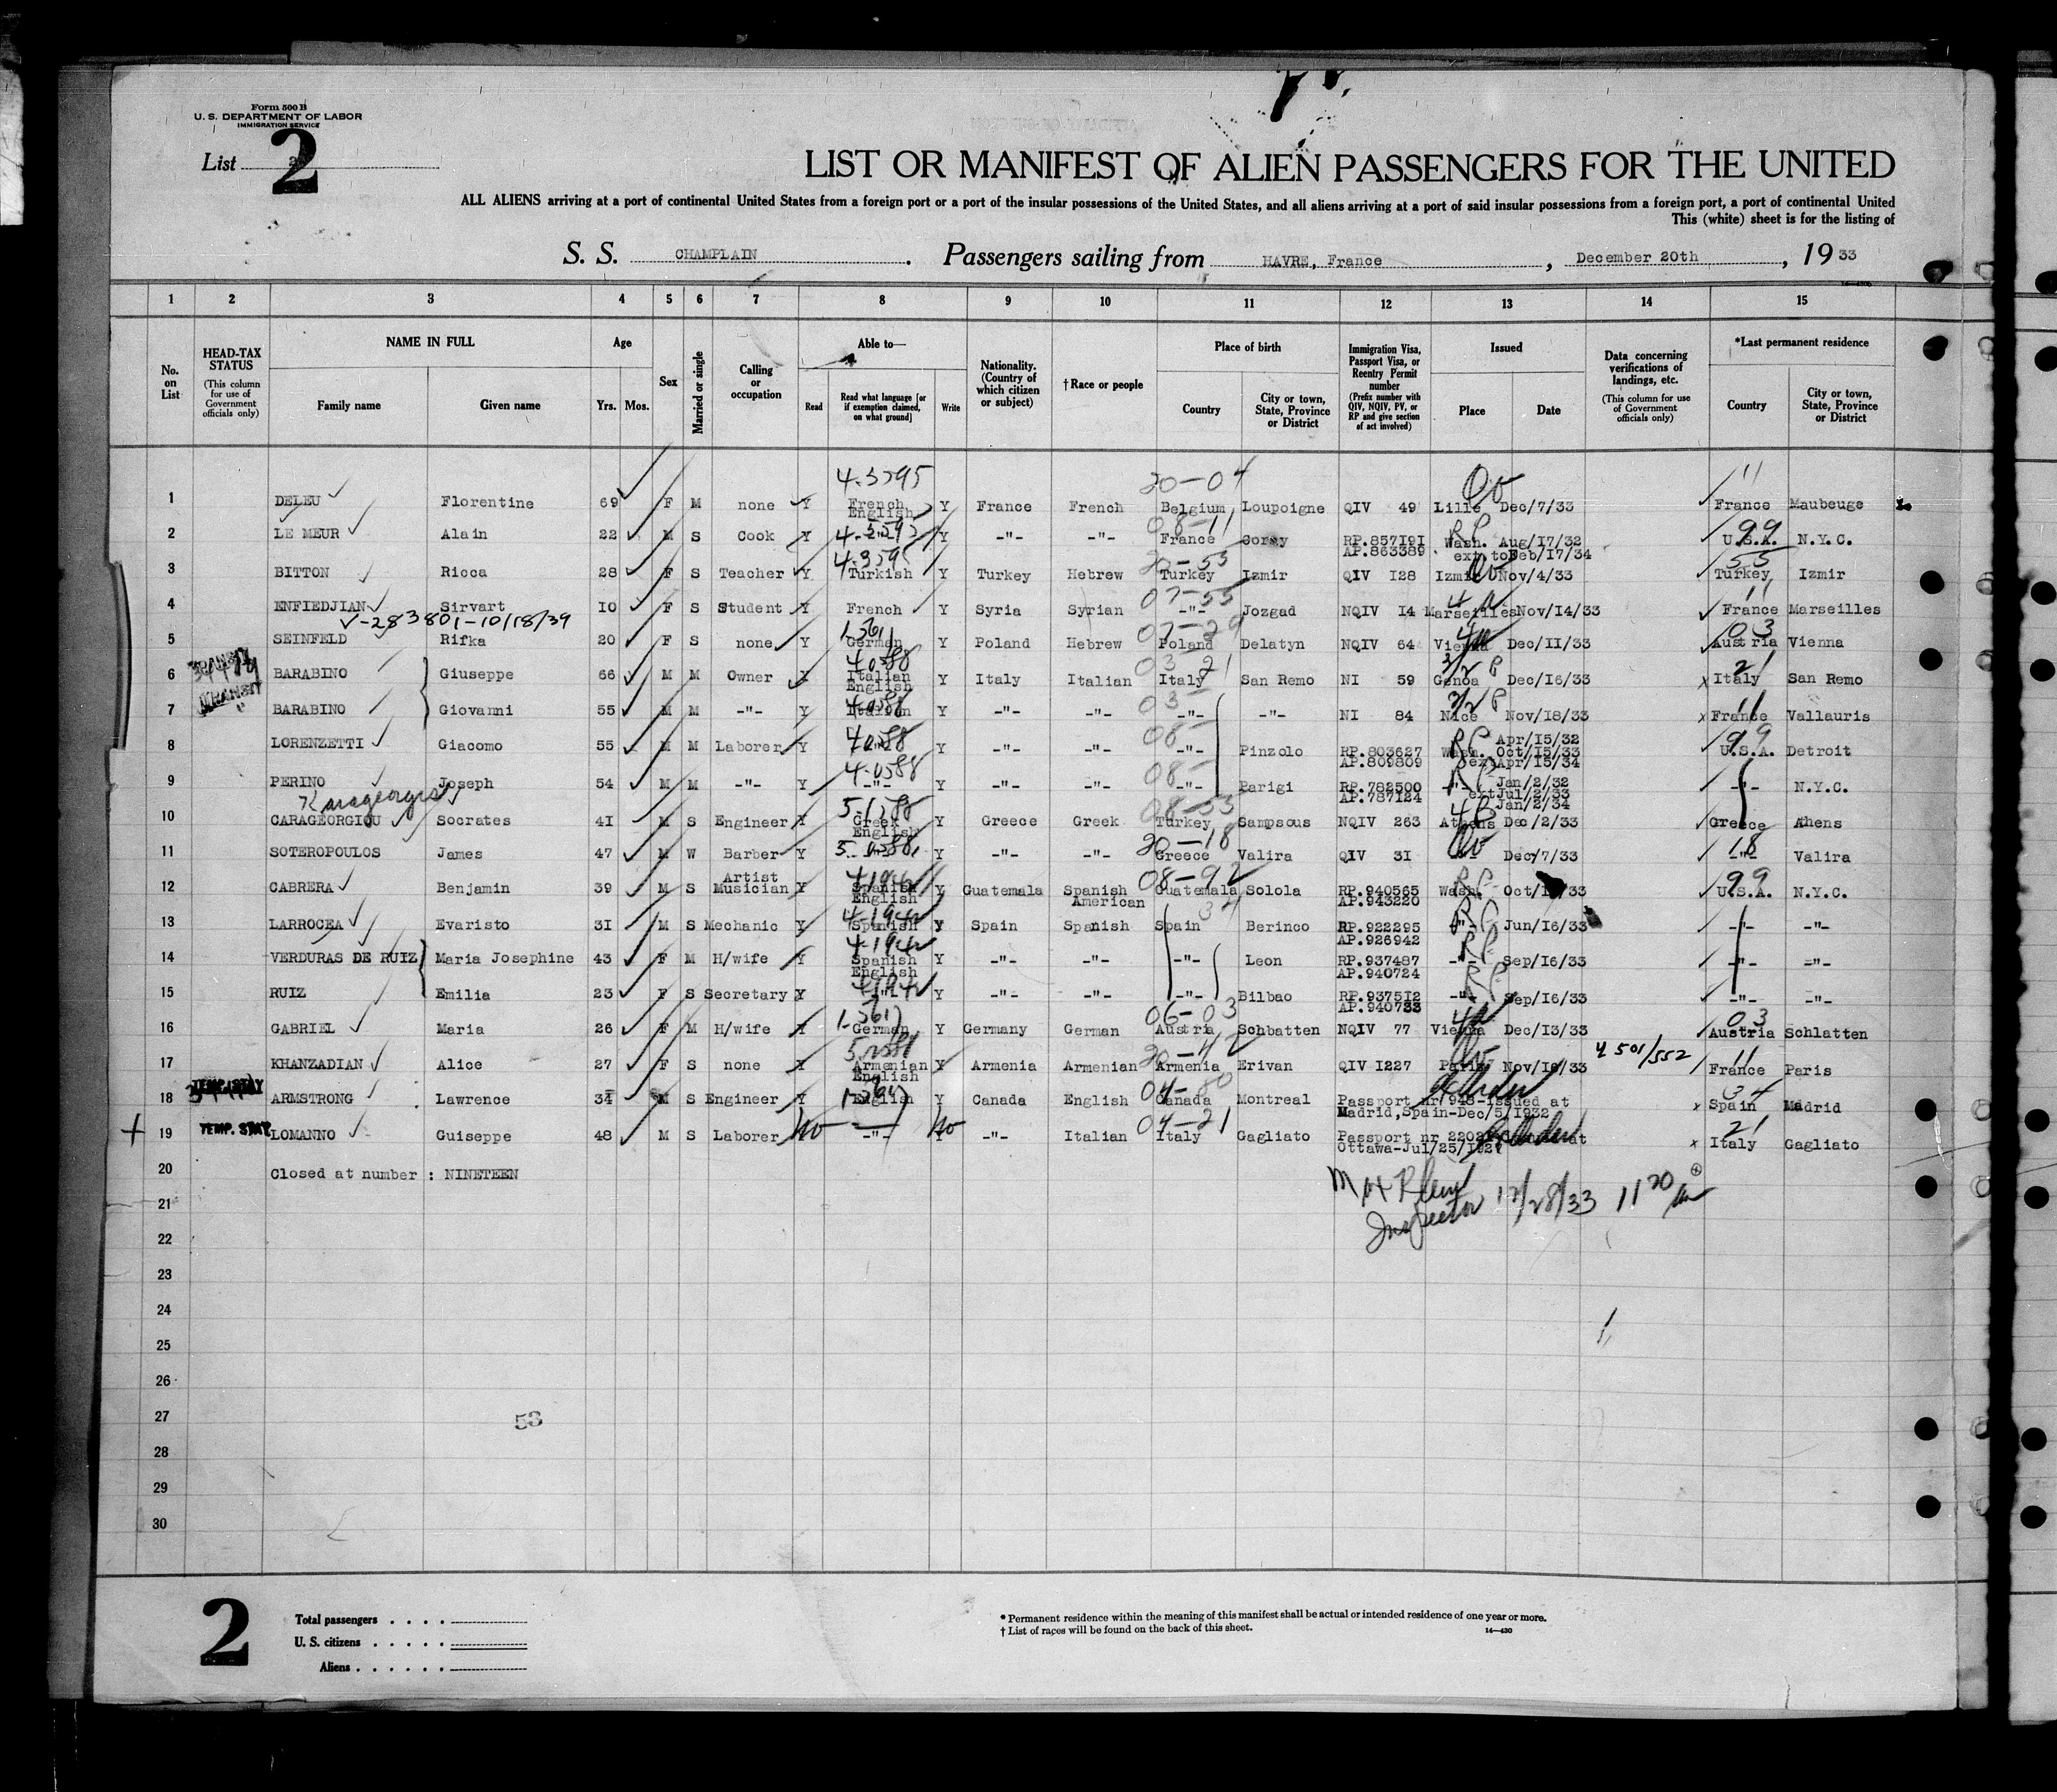 Form 500 B
U. S. DEPARTMENT OF LABOR
IMMIGRATION SERVICE
List 2
LIST OR MANIFEST OF ALIEN PASSENGERS FOR THE UNITED
ALL ALIENS arriving at a port of continental United States from a foreign port or a port of the insular possessions of the United States, and all aliens arriving at a port of said insular possessions from a foreign port, a port of continental United
This (white) sheet is for the listing of
S. S. CHAMPLAIN . Passengers sailing from HAVRE, France , December 20th , 19 33
1 2 3 4 5 6 7 8 9 10 11 12 13 14 15
No. on List
HEAD-TAX STATUS (This column for use of Government officials only)
NAME IN FULL Family name Given name
Age Yrs. Mos.
Sex
Married or single
Calling or occupation
Able to— Read Read what language [or if exemption claimed, on what ground] Write
Nationality. (Country of which citizen or subject)
† Race or people
Place of birth Country City or town, State, Province or District
Immigration Visa, Passport Visa, or Reentry Permit number (Prefix number with QIV, NQIV, PV, or RP and give section of act involved)
Issued Place Date
Data concerning verifications of landings, etc. (This column for use of Government officials only)
*Last permanent residence Country City or town, State, Province or District
4-3595 20-04 11
1 DELEU Florentine 69 F M none Y French English Y France French Belgium Loupoigne QIV 49 Lille Dec/7/33 France Maubeuge
08-11 RP 99
2 LE MEUR Alain 22 M S Cook Y -"- Y -"- -"- France Goray RP.857191 AP.863389 Wash. Aug/17/32 ext to Feb/17/34 U.S.A. N.Y.C.
4-3595 55
3 BITTON Ricca 28 F S Teacher Y Turkish Y Turkey Hebrew Turkey Izmir QIV I28 Izmir Nov/4/33 Turkey Izmir
07-55 11
4 ENFIEDJIAN Sirvart I0 F S Student Y French Y Syria Syrian -"- Jozgad NQIV I4 Marseilles Nov/I4/33 France Marseilles
-283801-10/18/39
03
5 SEINFELD Rifka 20 F S none Y German Y Poland Hebrew Poland Delatyn NQIV 64 Vienna Dec/II/33 Austria Vienna
TRANSIT 4-0588 03-21 21
6 BARABINO Giuseppe 66 M M Owner Y Italian English Y Italy Italian Italy San Remo NI 59 Genoa Dec/I6/33 Italy San Remo
TRANSIT 03- 11
7 BARABINO Giovanni 55 M M -"- Y Italian Y -"- -"- -"- -"- NI 84 Nice Nov/I8/33 France Vallauris
4-0588 08- RP 99
8 LORENZETTI Giacomo 55 M M Laborer Y -"- Y -"- -"- -"- Pinzolo RP.803627 AP.809809 Wash. Apr/I5/32 Oct/I5/33 ex Apr/I5/34 U.S.A. Detroit
4-0588 08-
9 PERINO Joseph 54 M M -"- Y -"- Y -"- -"- -"- Parigi RP.782500 AP.787I24 -"- Jan/2/32 ext Jul/2/33 Jan/2/34 -"- N.Y.C.
Karageorgis 08-55
10 CARAGEORGIOU Socrates 4I M S Engineer Y Greek English Y Greece Greek Turkey Sampsous NQIV 263 Athens Dec/2/33 Greece Athens
20-18 18
11 SOTEROPOULOS James 47 M W Barber Y Y -"- -"- Greece Valira QIV 3I -"- Dec/7/33 -"- Valira
08-92 RP 99
12 CABRERA Benjamin 39 M S Artist Musician Y Spanish English Y Guatemala Spanish American Guatemala Solola RP.940565 AP.943220 Wash. Oct/ /33 U.S.A. N.Y.C.
13 LARROCEA Evaristo 3I M S Mechanic Y Spanish Y Spain Spanish Spain Berinco RP.922295 AP.926942 -"- Jun/I6/33 -"- -"-
14 VERDURAS DE RUIZ Maria Josephine 43 F M H/wife Y Spanish English Y -"- -"- -"- Leon RP.937487 AP.940724 -"- Sep/I6/33 -"- -"-
15 RUIZ Emilia 23 F S Secretary Y -"- Y -"- -"- -"- Bilbao RP.9375I2 AP.940733 -"- Sep/I6/33 -"- -"-
06-03 03
16 GABRIEL Maria 26 F M H/wife Y German Y Germany German Austria Schbatten NQIV 77 Vienna Dec/I3/33 Austria Schlatten
4 501/552 11
17 KHANZADIAN Alice 27 F S none Y Armenian English Y Armenia Armenian Armenia Erivan QIV I227 Paris Nov/I6/33 France Paris
TEMP. STAY 34
18 ARMSTRONG Lawrence 34 M S Engineer Y English Y Canada English Canada Montreal Passport nr 948-issued at Madrid,Spain-Dec/5/I932 Spain Madrid
TEMP. STAY no no 04-21 21
19 LOMANNO Guiseppe 48 M S Laborer -"- Y -"- Italian Italy Gagliato Passport nr Ottawa-Jul/25/I927 Italy Gagliato
20 Closed at number : NINETEEN
Inspector 12/28/33 11 20 am
21
22
23
24
25
26
27 53
28
29
30
2
Total passengers . . . .
U. S. citizens . . . . .
Aliens . . . . . .
* Permanent residence within the meaning of this manifest shall be actual or intended residence of one year or more.
† List of races will be found on the back of this sheet.
14—430